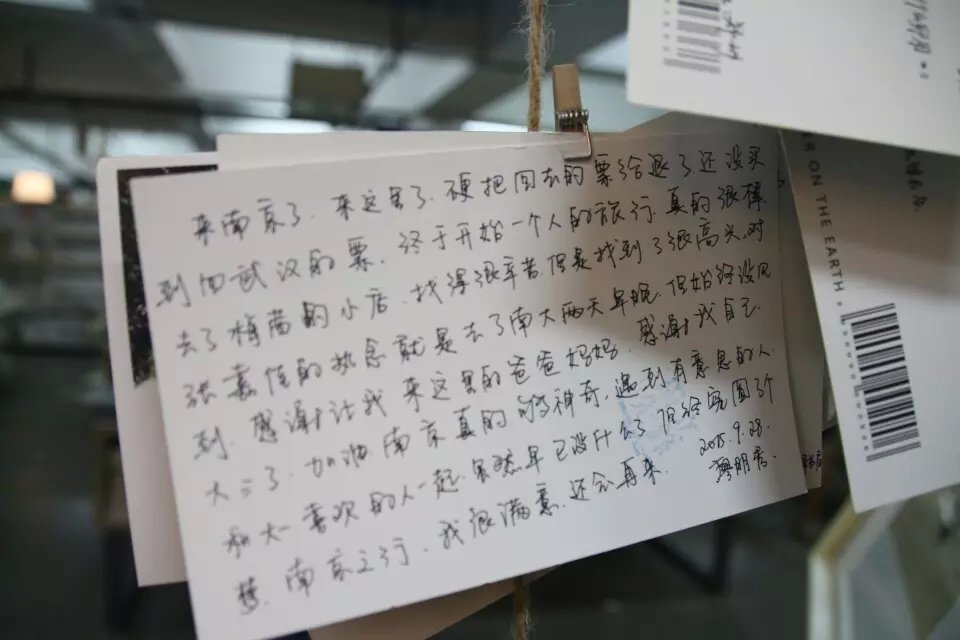 来南京了.来这里了.硬把回去的票给退了还没买
到回武汉的票.终于开始一个人的旅行.真的很棒.
去了梢茴的小店.找得很辛苦.但是找到了很高兴.对
张嘉佳的执念就是去了南大两天单眼.但始终没见
到.感谢让我来这里的爸爸妈妈.感谢我自己.
大三了.加油.南京真的好神奇.遇到有意思的人
和大一喜欢的人一起.虽然早已没什么了但给完圆个
梦.南京之行.我很满意.还会再来.
2015.9.28.
ON THE EARTH